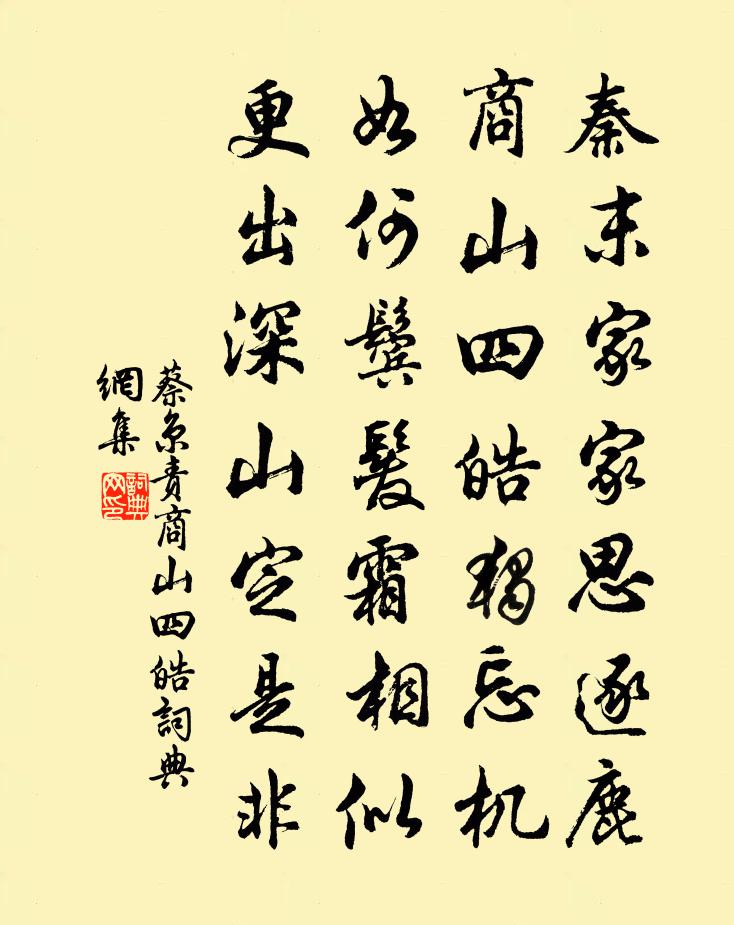 秦末家家思逐鹿
商山四皓獨忘机
如何鬢髮霜相似
更出深山定是非
蔡京責商山四皓詞典
網集
詞典
网印